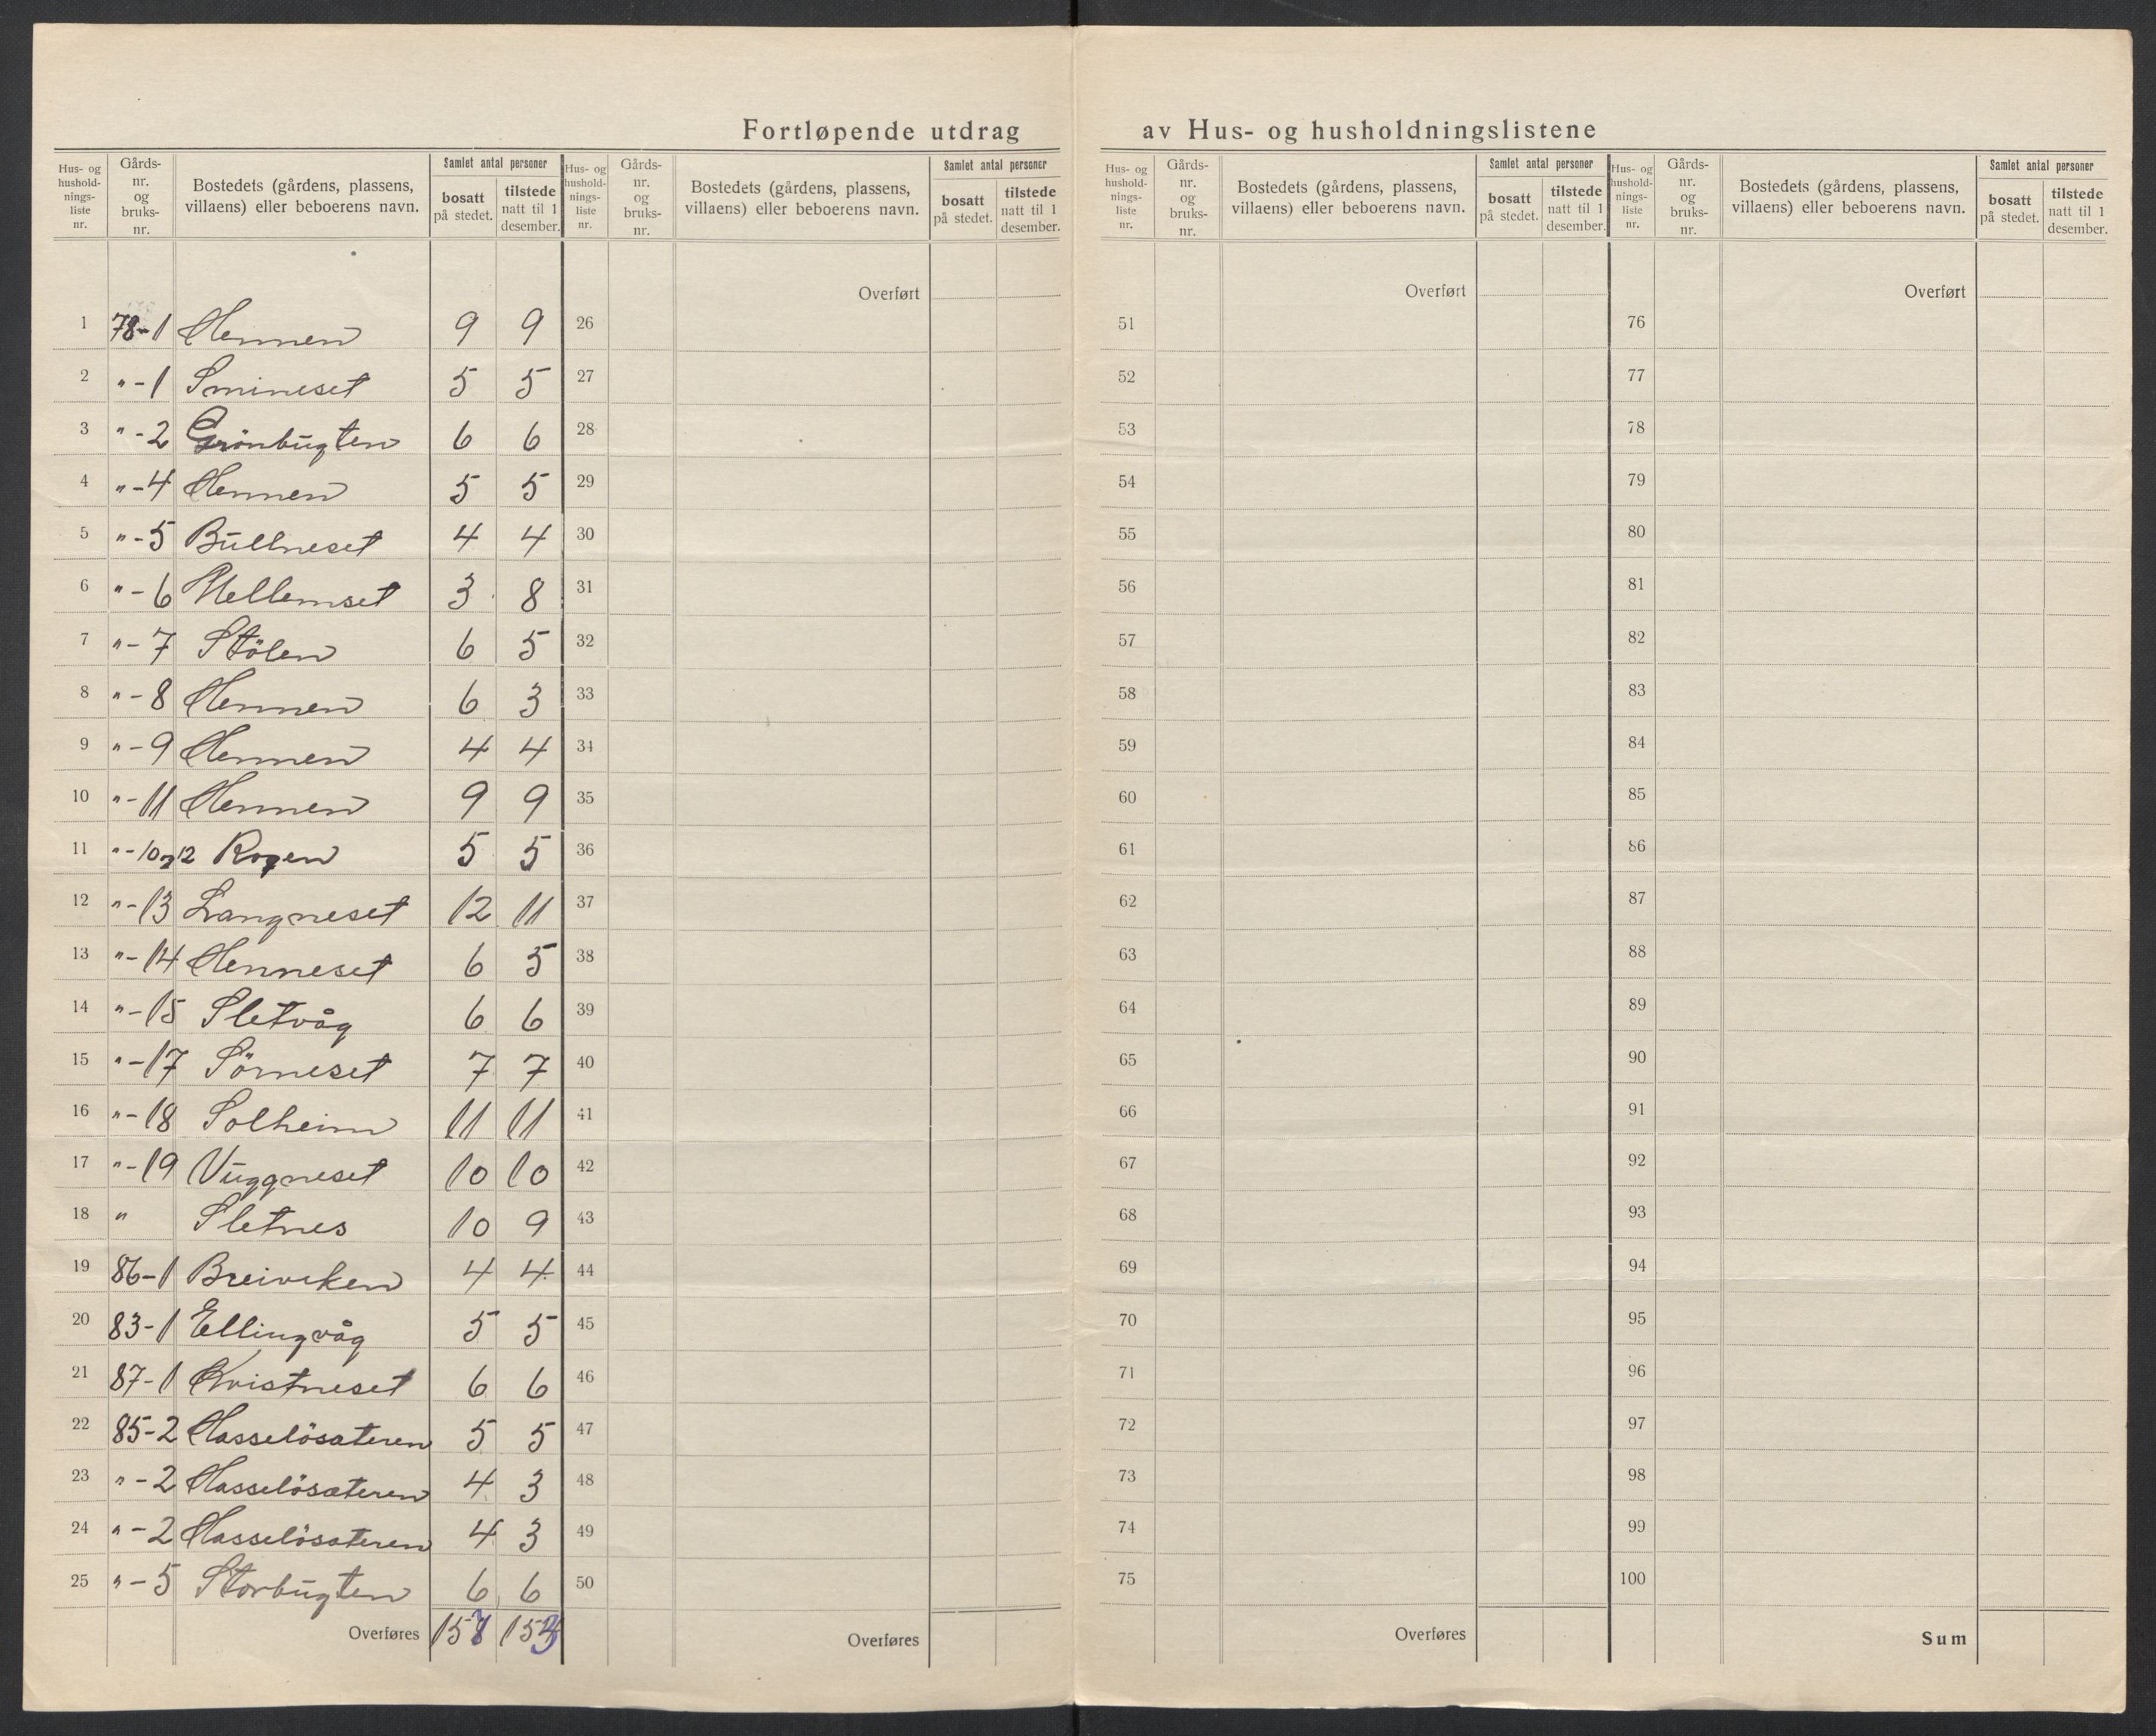 Fortløpende utdrag av Hus- og husholdningslistene
Hus- og hushold-nings-liste nr. | Gårds-nr. og bruks-nr. | Bostedets (gårdens, plassens, villaens) eller beboerens navn. | Samlet antal personer | bosatt på stedet. | tilstede natt til 1 desember.
Hus- og hushold-nings-liste nr. | Gårds-nr. og bruks-nr. | Bostedets (gårdens, plassens, villaens) eller beboerens navn. | Samlet antal personer | bosatt på stedet. | tilstede natt til 1 desember.
Hus- og hushold-nings-liste nr. | Gårds-nr. og bruks-nr. | Bostedets (gårdens, plassens, villaens) eller beboerens navn. | Samlet antal personer | bosatt på stedet. | tilstede natt til 1 desember.
Hus- og hushold-nings-liste nr. | Gårds-nr. og bruks-nr. | Bostedets (gårdens, plassens, villaens) eller beboerens navn. | Samlet antal personer | bosatt på stedet. | tilstede natt til 1 desember.
1 78-1 Hennen 9 9
2 "-1 Smineset 5 5
3 "-2 Grönbugten 6 6
4 "-4 Hennen 5 5
5 "-5 Bullneset 4 4
6 "-6 Mellemset 3 8
7 "-7 Stölen 6 5
8 "-8 Hennen 6 3
9 "-9 Hennen 4 4
10 "-11 Hennen 9 9
11 "-10 12 5 5
12 "-13 Langneset 12 11
13 "-14 Henneset 6 5
14 "-15 Sletvåg 6 6
15 "-17 Sörneset 7 7
16 "-18 Solheim 11 11
17 "-19 Vuggneset 10 10
18 " Sletnes 10 9
19 86-1 Breiviken 4 4
20 83-1 Ellingvåg 5 5
21 87-1 Kvistneset 6 6
22 85-2 Hasselösateren 5 5
23 "-2 Hasselösæteren 4 3
24 "-2 Hasselösateren 4 3
25 "-5 Storbugten 6 6
Overføres 158 153
Overført
26
27
28
29
30
31
32
33
34
35
36
37
38
39
40
41
42
43
44
45
46
47
48
49
50
Overføres
Overført
51
52
53
54
55
56
57
58
59
60
61
62
63
64
65
66
67
68
69
70
71
72
73
74
75
Overføres
Overført
76
77
78
79
80
81
82
83
84
85
86
87
88
89
90
91
92
93
94
95
96
97
98
99
100
Sum